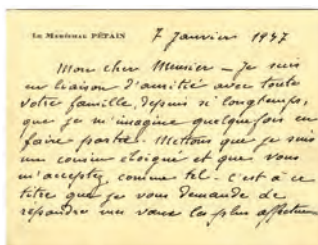 LE MARÉCHAL PÉTAIN
7 Janvier 1937
Mon cher Meusier – Je suis
en liaison d'amitié avec toute
votre famille, depuis si longtemps,
que je m'imagine quelquefois en
faire partie. Mettons que je suis
un cousin éloigné et que vous
m'acceptez comme tel. C'est à ce
titre que je vous demande de
répondre mes vœux les plus affectueux